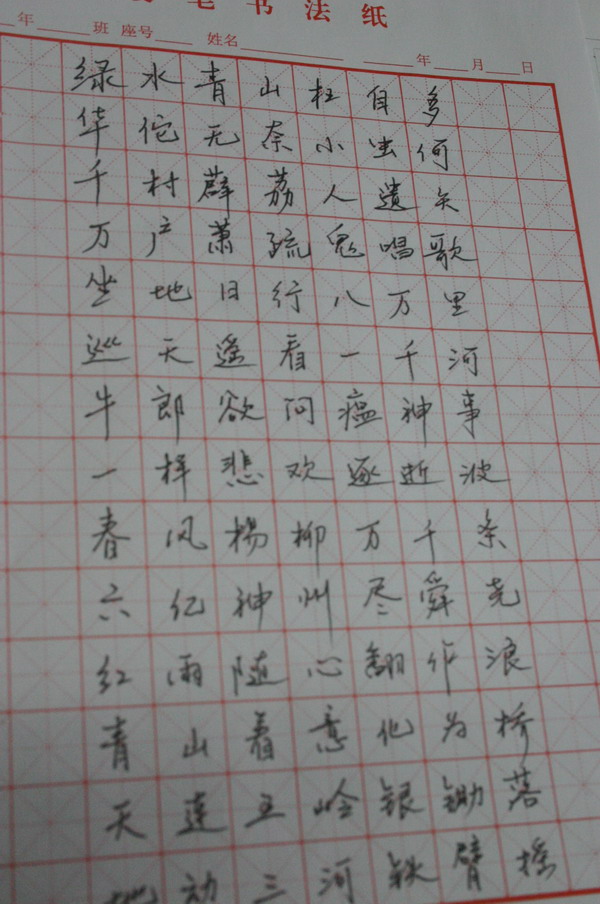 笔书法纸
年 班 座号 姓名 年 月 日
绿水青山枉自多
华佗无奈小虫何
千村薜荔人遗矢
万户萧疏鬼唱歌
坐地日行八万里
巡天遥看一千河
牛郎欲问瘟神事
一样悲欢逐逝波
春风杨柳万千条
六亿神州尽舜尧
红雨随心翻作浪
青山着意化为桥
天连五岭银锄落
地动三河铁臂摇